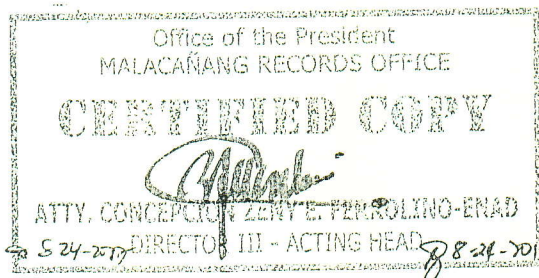 Office of the President
MALACAÑANG RECORDS OFFICE
CERTIFIED COPY
ATTY. CONCEPCION ZENY E. FERROLINO-ENAD
DIRECTOR III - ACTING HEAD